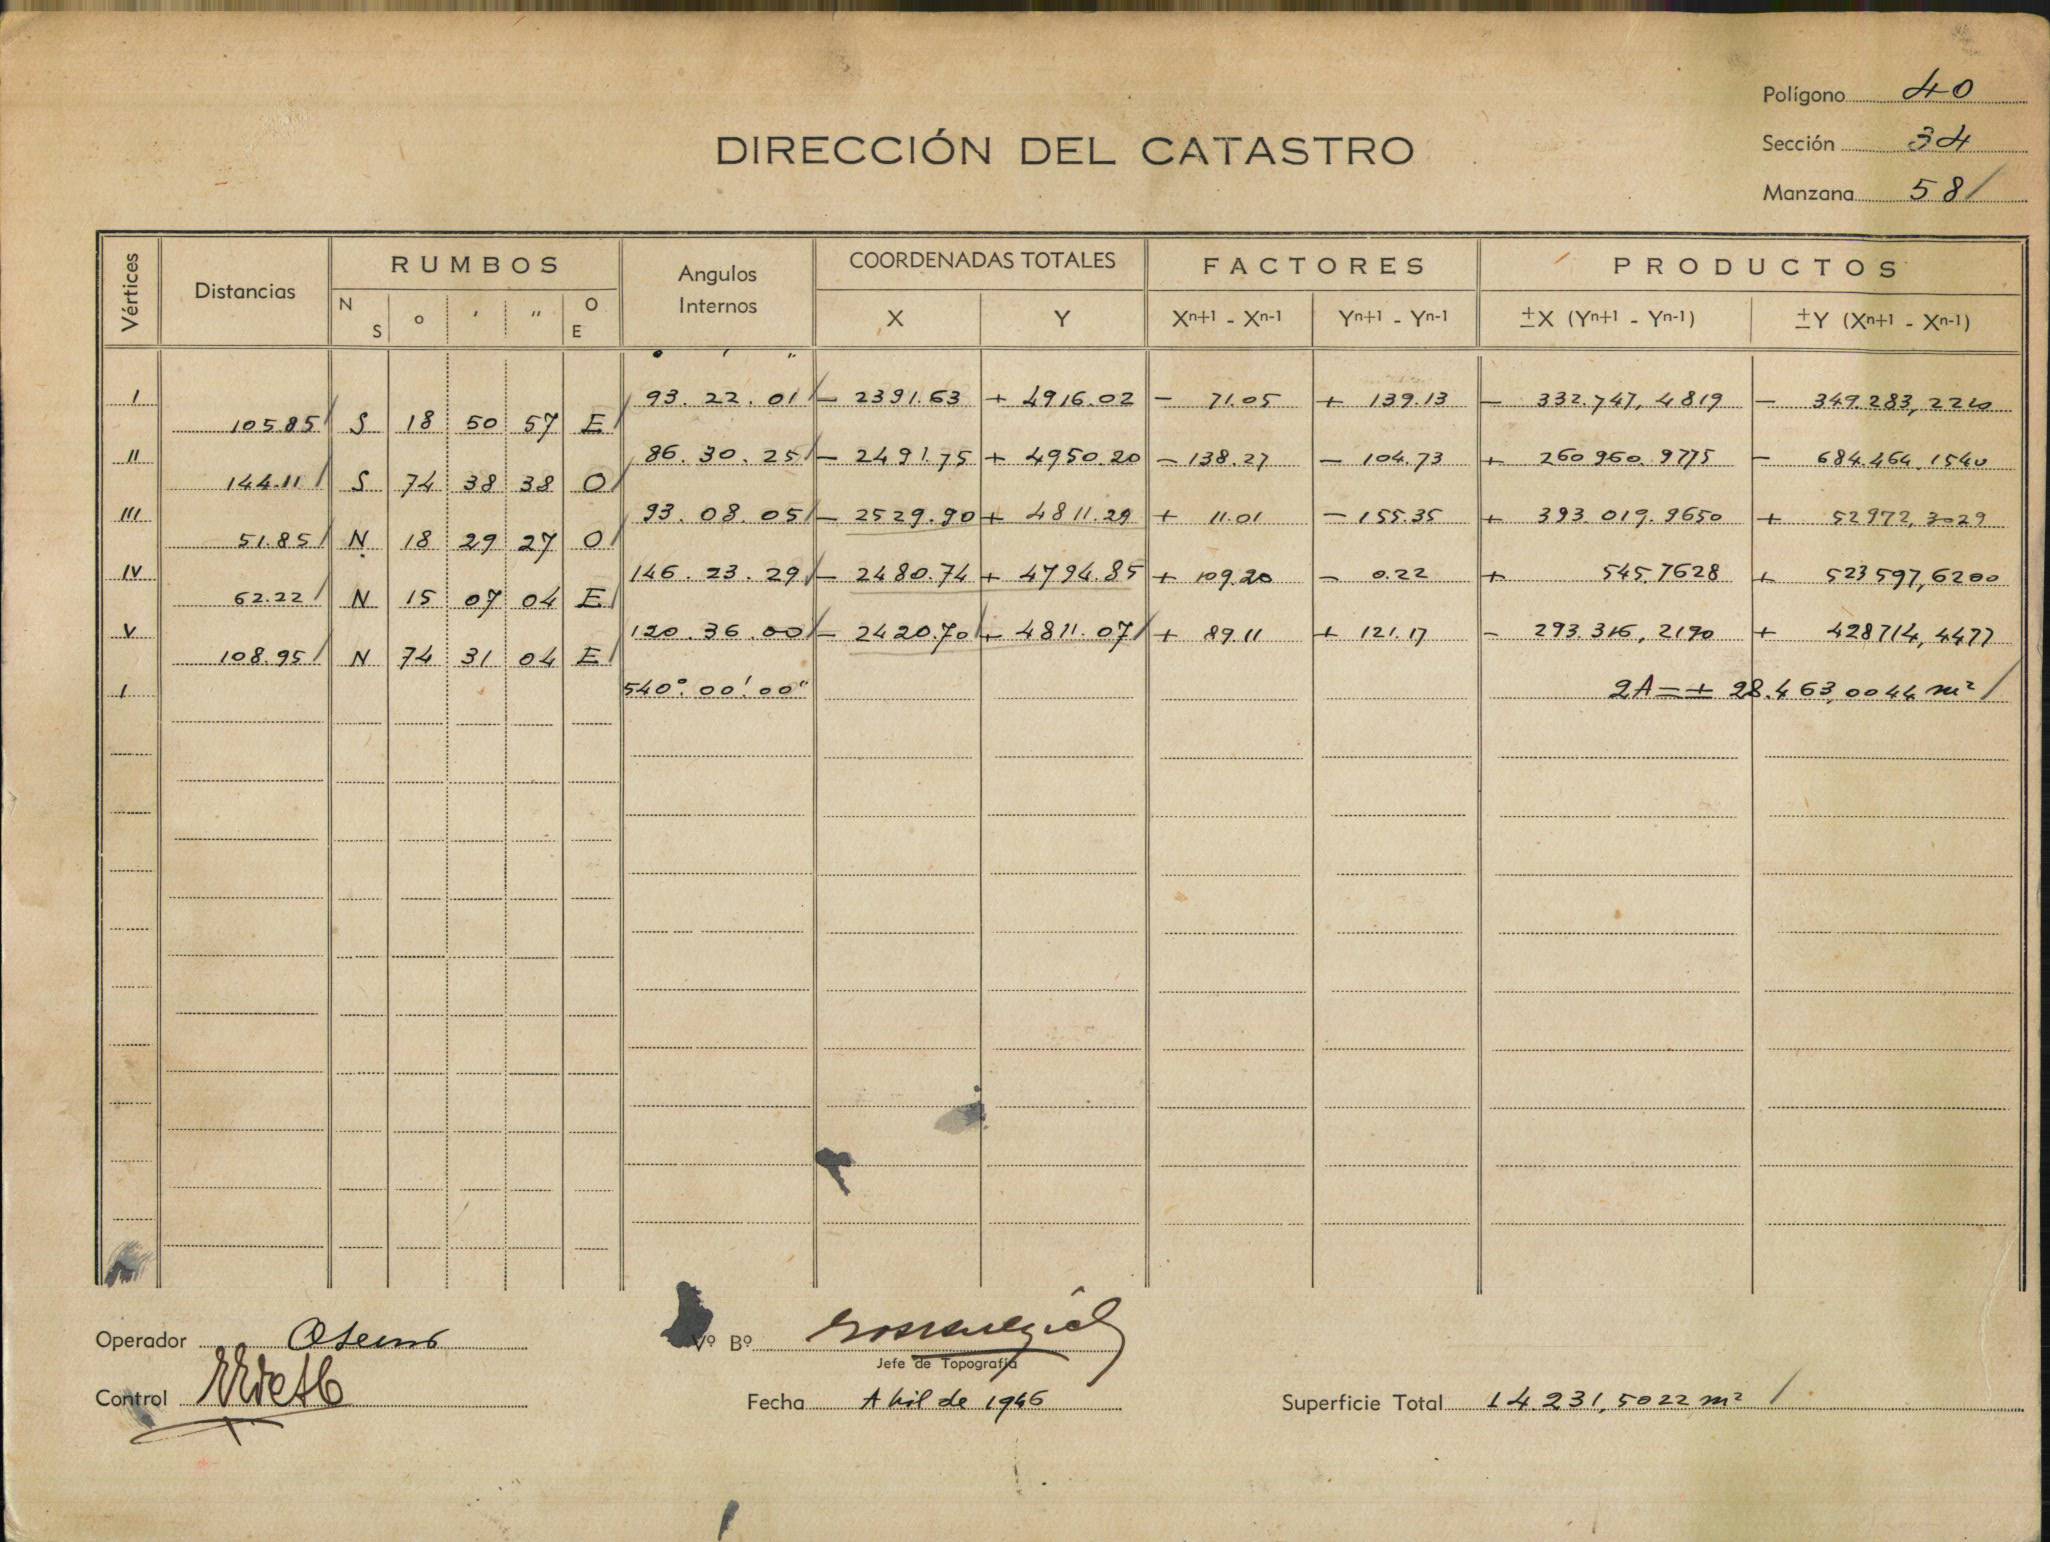 Polígono 40
DIRECCIÓN DEL CATASTRO
Sección 34
Manzana 58
Vértices Distancias RUMBOS Angulos Internos COORDENADAS TOTALES FACTORES PRODUCTOS
N S ° ' " O E X Y Xn+1 - Xn-1 Yn+1 - Yn-1 ±X (Yn+1 - Yn-1) ±Y (Xn+1 - Xn-1)
° ' "
I 93. 22. 01 - 2391.63 + 4916.02 - 71.05 + 139.13 - 332.747,4819 - 349.283,2210
105.85 S 18 50 57 E
II 86. 30. 25 - 2491.75 + 4950.20 - 138.27 - 104.73 + 260960.9775 - 684.464.1540
144.11 S 74 38 38 O
III 93. 08. 05 - 2529.90 + 4811.29 + 11.01 - 155.35 + 393.019.9650 + 52972,3029
51.85 N 18 29 27 O
IV 146. 23. 29 - 2480.74 + 4794.85 + 109.20 - 0.22 + 545.7628 + 523597,6200
62.22 N 15 07 04 E
V 120. 36. 00 - 2420.70 + 4811.07 + 89.11 + 121.17 - 293.316,2190 + 428714,4477
108.95 N 74 31 04 E
I 540°. 00'. 00" 2A = + 28.463,0044 m²
Operador
Vº Bº
Jefe de Topografía
Control
Fecha Abil de 1946
Superficie Total 14.231,5022 m²